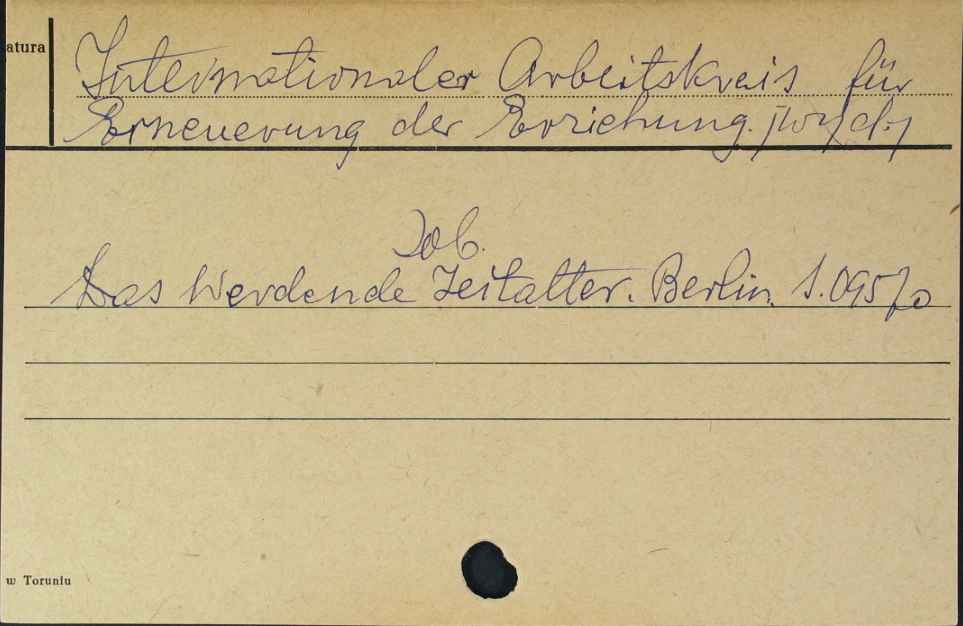 atura
Internationaler Arbeitskreis für
Erneuerung der Erziehung. /wyd./
Zob.
Das Werdende Zeitalter. Berlin. S.095/0
w Toruniu